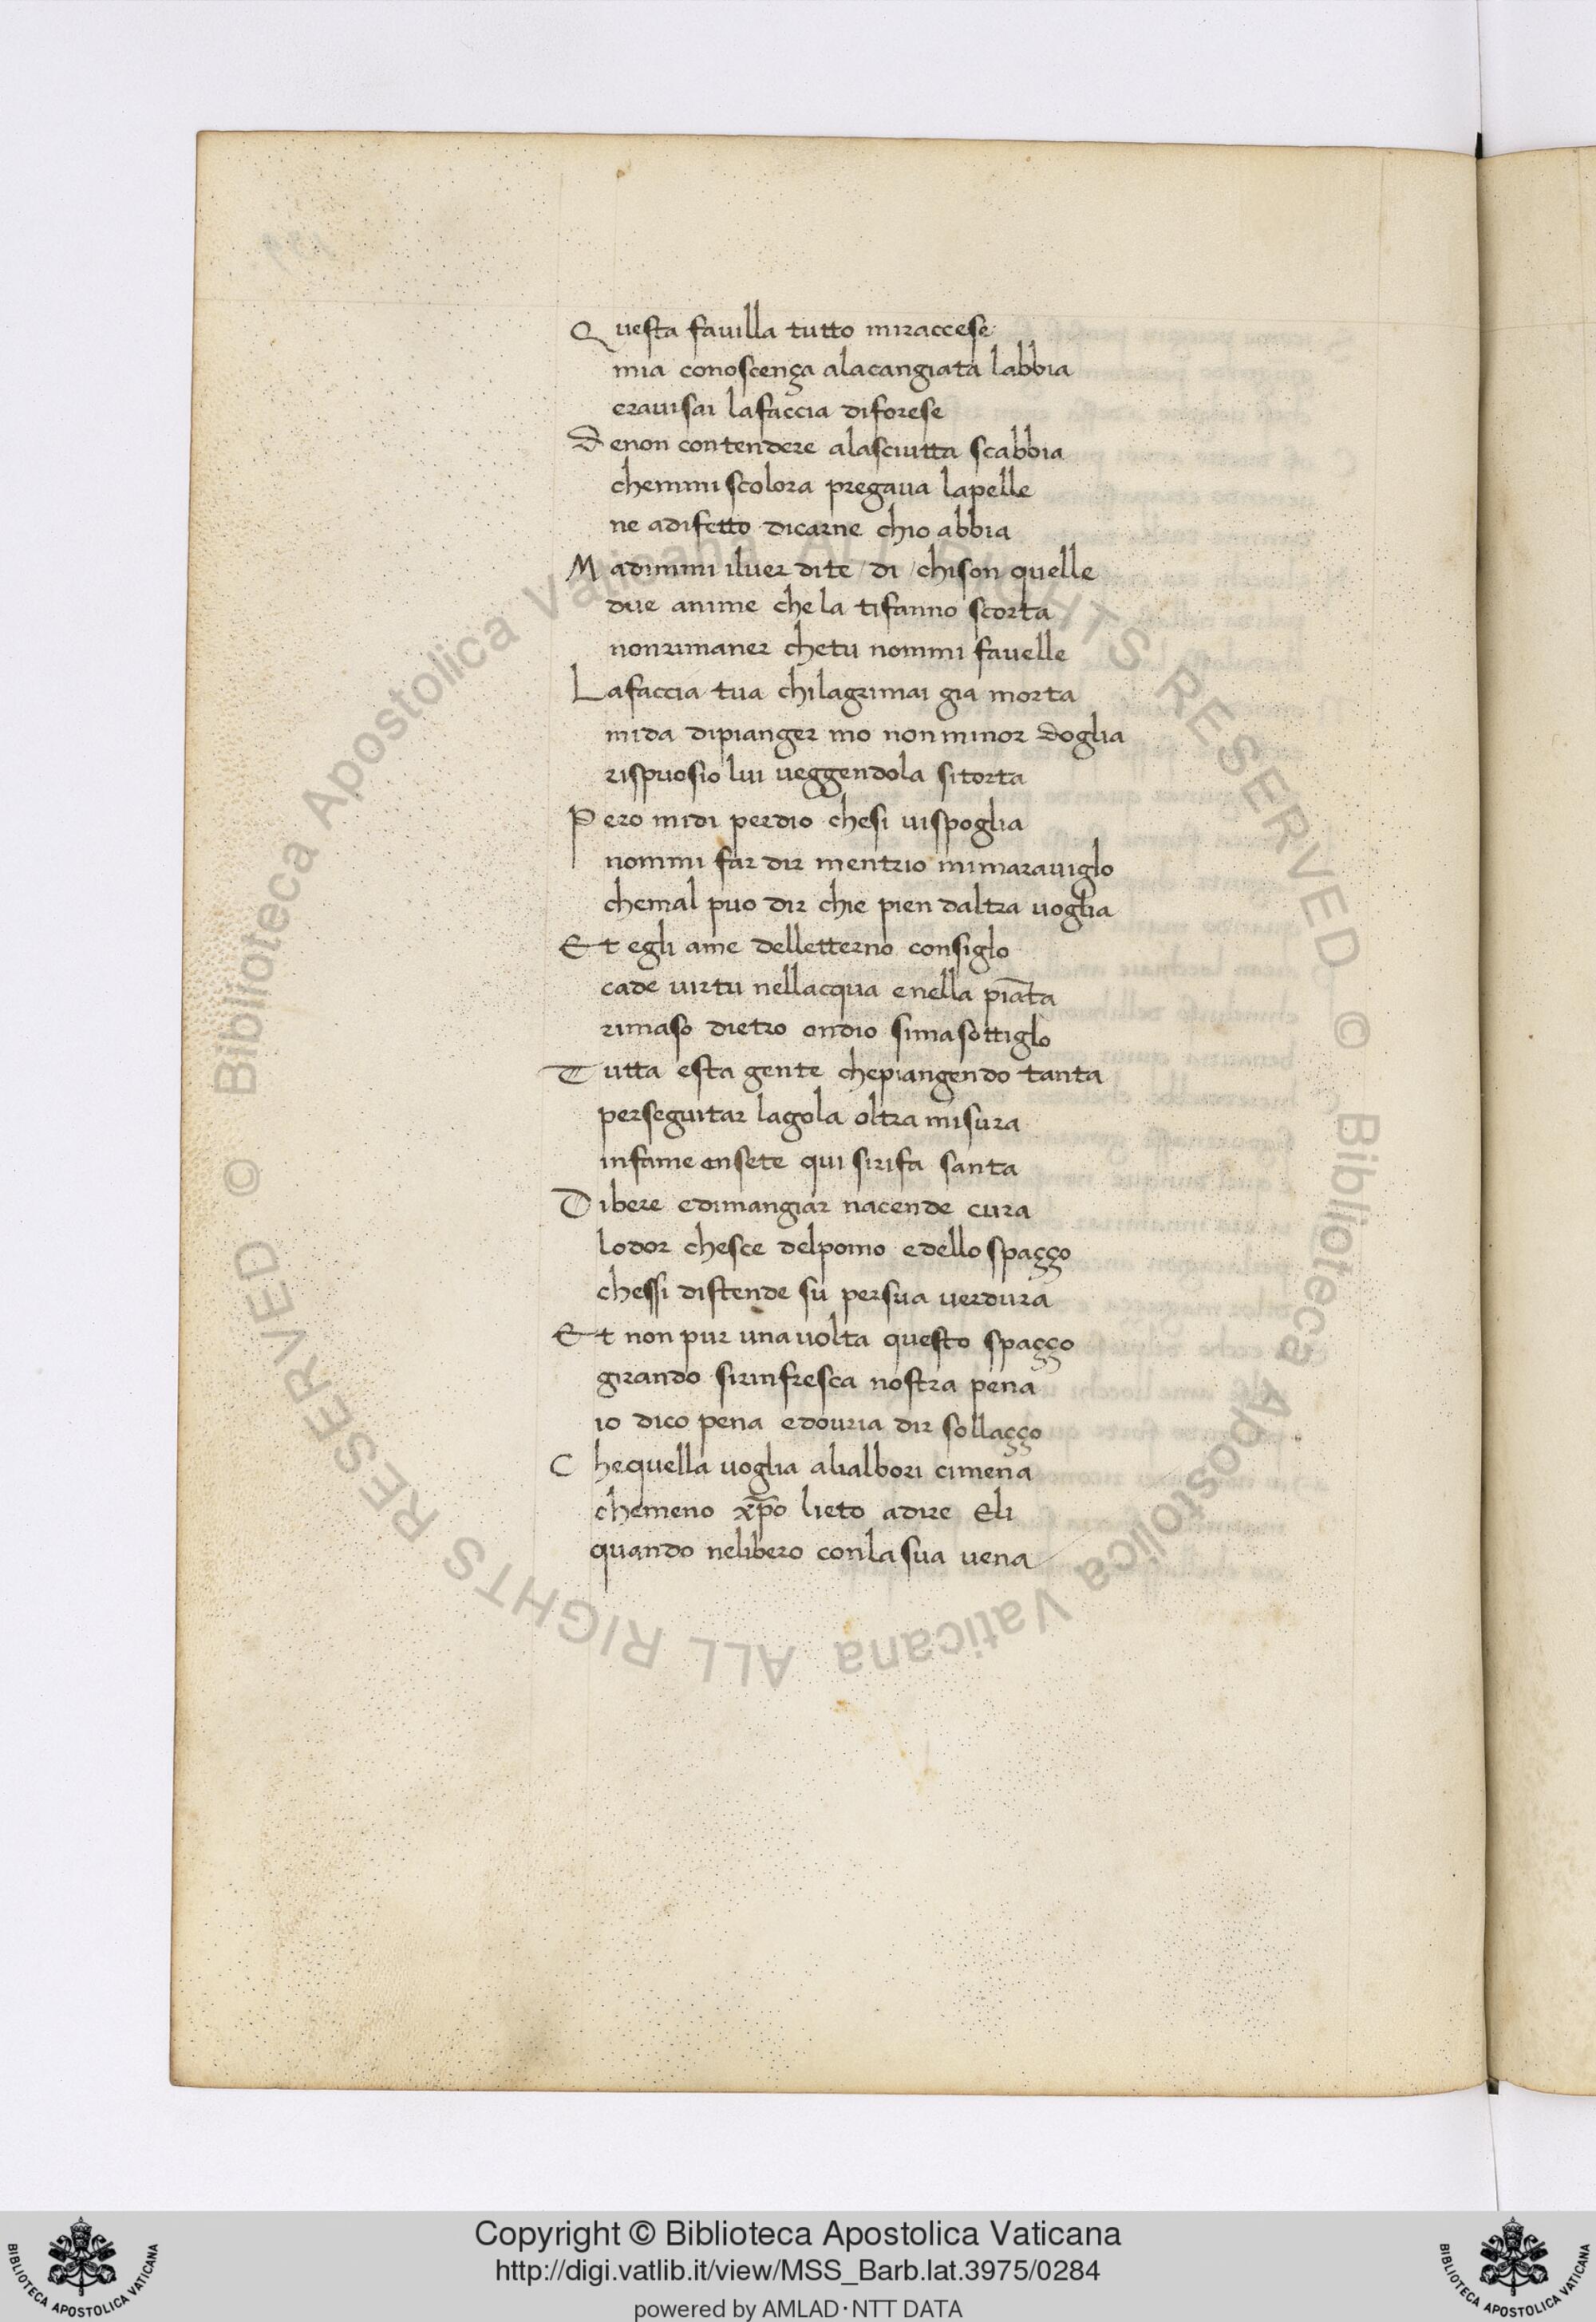 Questa fauilla tutto miraccese
mia conoscença alacangiata labbia
erauisai lafaccia diforese
Denon contendere alasciutta scabbia
chemmi scolora pregaua lapelle
ne adifetto dicarne chio abbia
Madimmi iluer dite / di / chison quelle
due anime che la tifanno scorta
nonrimaner chetu nommi fauelle
Lafaccia tua chilagrimai gia morta
mida dipianger mo nonminor doglia
rispuosio lui ueggendola sitorta
Pero midi perdio chesi uispoglia
nommi far dir mentrio mimarauiglo
chemal puo dir chie pien daltra uoglia
Et egli ame delletterno consiglo
cade uirtu nellacqua enella pia̅ta
rimaso dietro ondio simasottiglo
Tutta esta gente chepiangendo tanta
perseguitar lagola oltra misura
infame ensete qui sirifa santa
Dibere edimangiar nacende cura
lodor chesce delpomo edello spaçço
chessi distende su persua uerdura
Et non pur unauolta questo spaçço
girando sirinfresca nostra pena
io dico pena edouria dir sollaçço
Chequella uoglia alialbori cimena
chemeno xp̅o lieto adire Eli
quando nelibero conla sua uena
© Biblioteca Apostolica Vaticana ALL RIGHTS RESERVED
© Biblioteca Apostolica Vaticana ALL RIGHTS RESERVED
Copyright © Biblioteca Apostolica Vaticana
http://digi.vatlib.it/view/MSS_Barb.lat.3975/0284
powered by AMLAD·NTT DATA
BIBLIOTECA APOSTOLICA VATICANA
BIBLIOTECA APOSTOLICA VATICANA